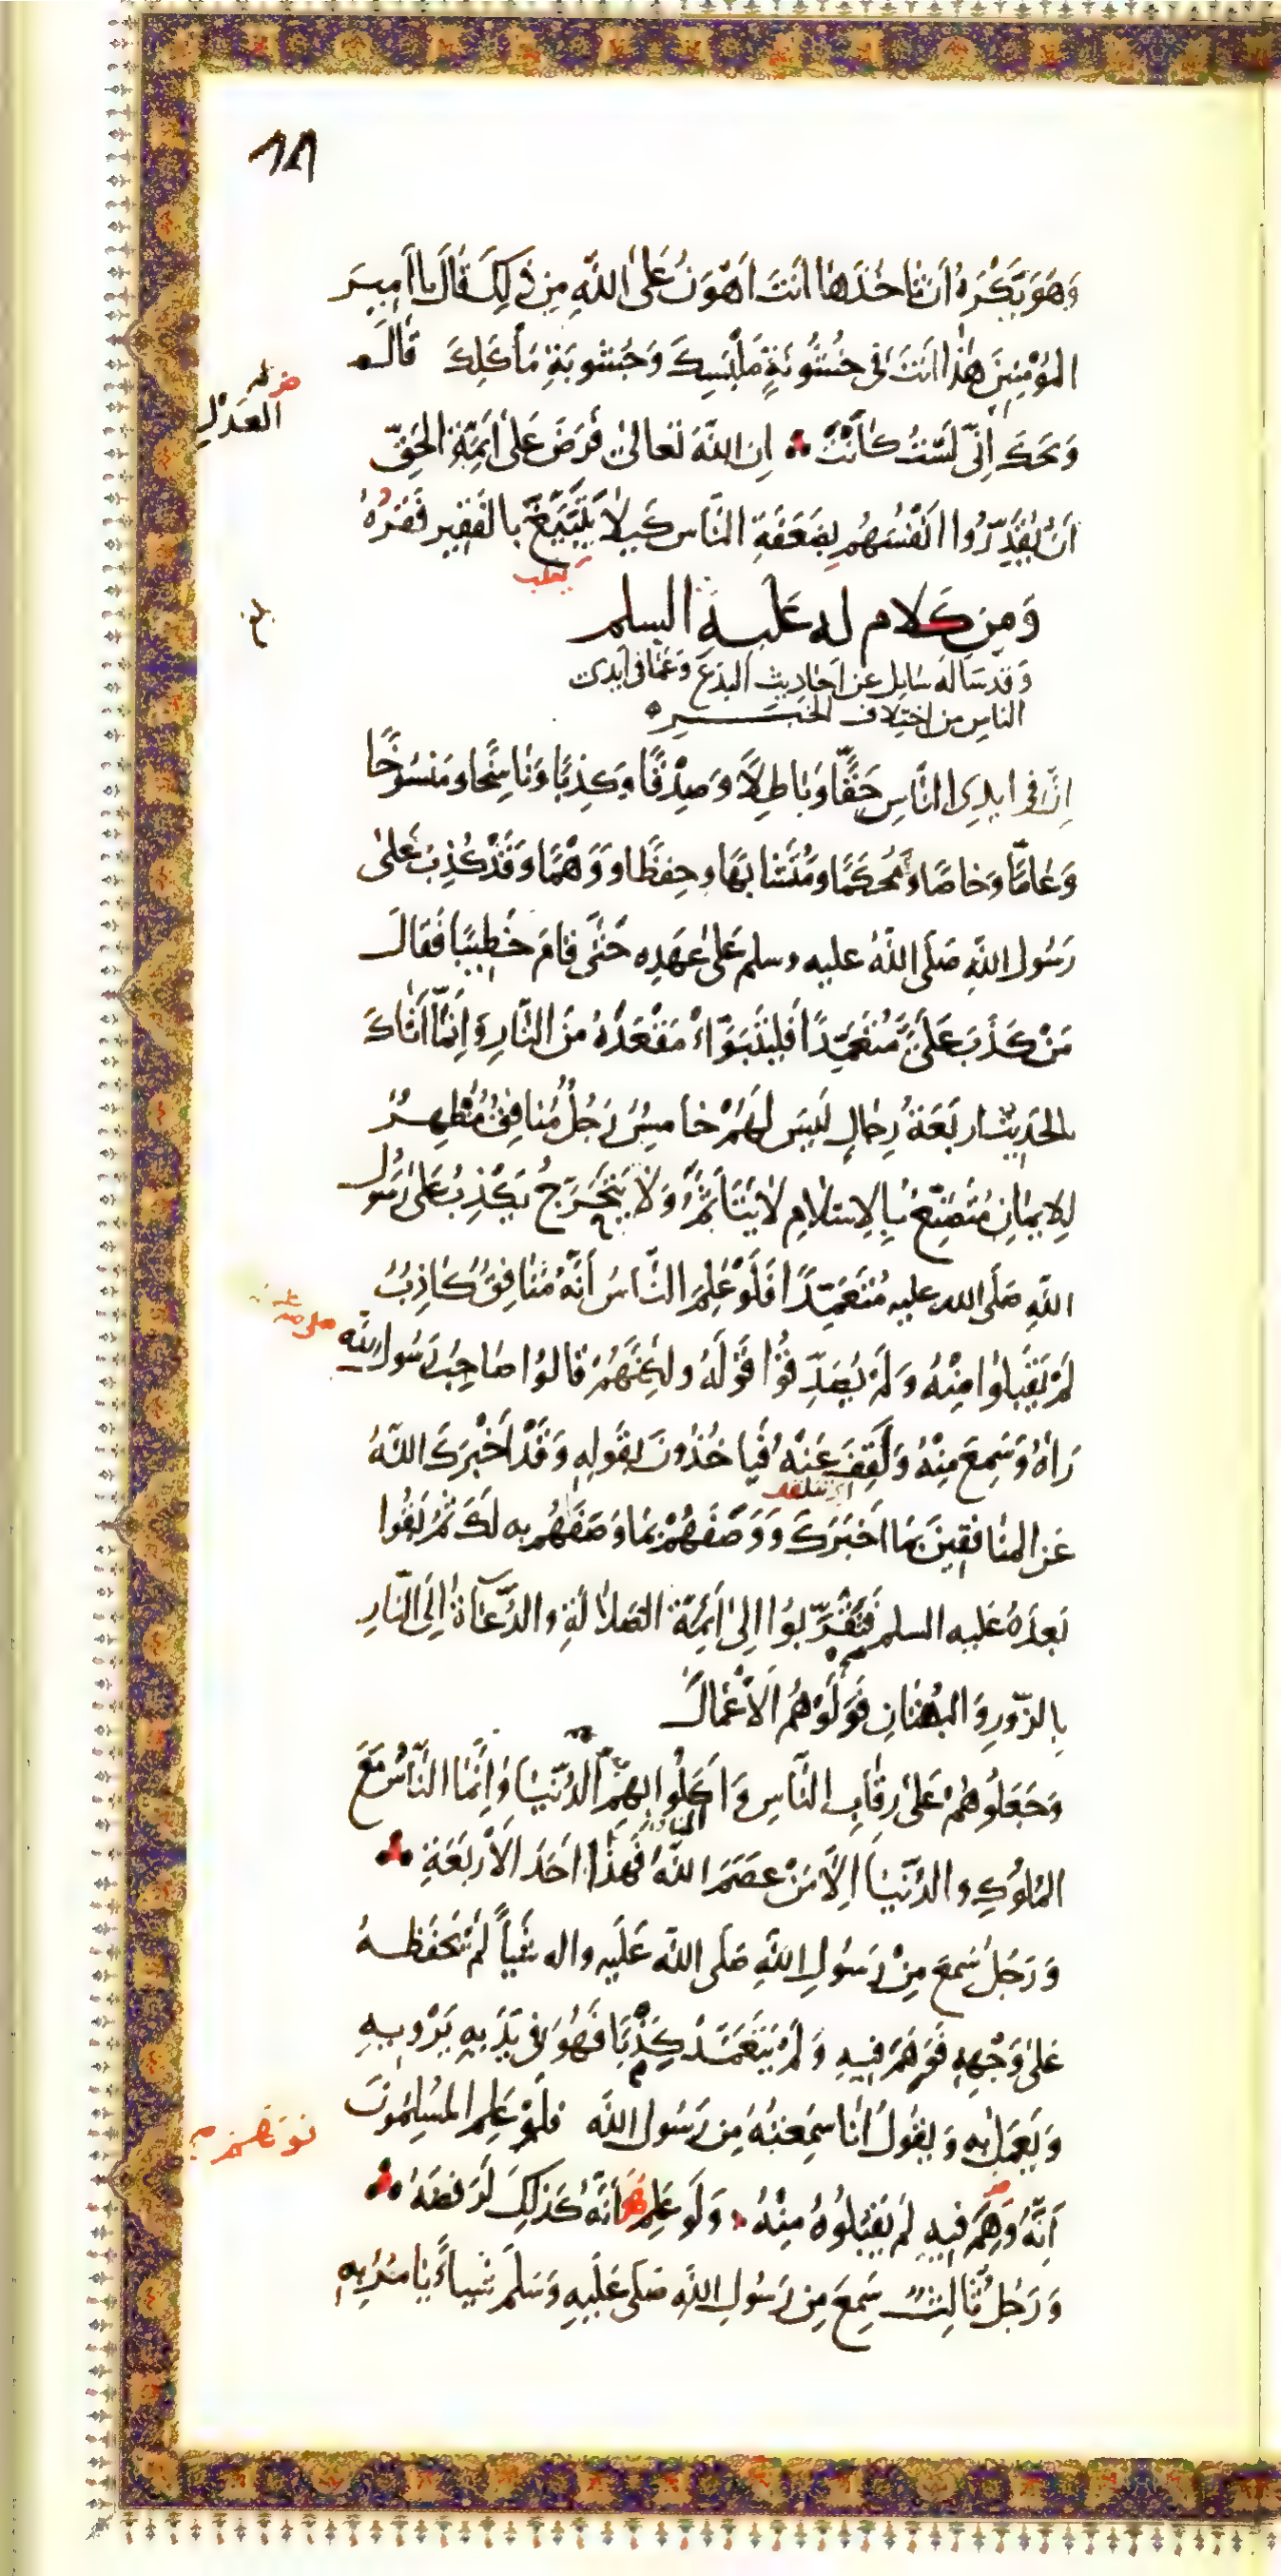 ١٨١
وَهُوَ يَكْرَهُ أَن تَأْخُذَهَا أَنتَ أَهْوَنُ عَلَى اللَّهِ مِن ذَلِكَ قَالَ يَا أَمِيرَ
المُؤْمِنِينَ هَذَا أَنتَ فِي خُشُونَةِ مَلْبَسِكَ وَجُشُوبَةِ مَأْكَلِكَ قَالَ
وَيْحَكَ إِنِّي لَسْتُ كَأَنْتَ إِن اللَّهَ تَعَالَى فَرَضَ عَلَى أَئِمَّةِ الحَقِّ
العَدْلِ
أَنْ يُقَدِّرُوا أَنْفُسَهُم بِضَعَفَةِ النَّاسِ كَيلَا يَتَبَيَّغَ بِالفَقِيرِ فَقْرُهُ
وَمِن كَلَام له عَلَيهِ السلم
وَقَد سَأَلَهُ سَايِل عَن أَحَادِيثِ البِدَعِ وَعَمَّا فِي أَيْدِي
النَّاسِ مِن اخْتِلَافِ الخَبَرِ
إِنَّ فِي أَيدِي النَّاسِ حَقًّا وَبَاطِلًا وَصِدْقًا وَكِذِبًا وَنَاسِخًا وَمَنْسُوخًا
وَعَامًّا وَخَاصًّا وَمُحكَمًا وَمُتَشَابِهًا وَحِفظًا وَوَهْمًا وَقَدْ كُذِبَ عَلَى
رَسُولِ اللَّهِ صَلَّى اللَّهُ عليه وسلم عَلَى عَهدِهِ حَتَّى قَامَ خَطِيبًا فَقَالَ
مَنْ كَذَبَ عَلَيَّ مُتَعَمِّدًا فَليَتَبَوَّأْ مَقْعَدَهُ مِنَ النَّارِ وَإِنَّمَا أَتَاكَ
بالحَدِيثِ أربَعَةُ رِجَالٍ لَيسَ لَهُمْ خَامِسٌ رَجُلٌ مُنَافِقٌ مُظْهِرٌ
لِلإِيمَانِ مُتَصَنِّعٌ بِالإِسْلَامِ لَا يَتَأَثَّمُ وَلَا يَتَحَرَّجُ يَكْذِبُ عَلَى رَسُولِ
اللَّهِ صَلَّى الله عليه مُتَعَمِّدًا فَلَوْ عَلِمَ النَّاسُ أَنَّهُ مُنَافِقٌ كَاذِبٌ
لَمْ يَقْبَلُوا مِنْهُ وَلَمْ يُصَدِّقُوا قَوْلَهُ وَلَكِنَّهُمْ قَالُوا صَاحِبُ رَسُولِ اللَّهِ
رَآهُ وَسَمِعَ مِنْهُ وَلَقِفَ عَنْهُ فَيَأخُذُونَ بِقَولِهِ وَقَدْ أَخْبَرَكَ اللَّهُ
عَنِ المُنَافِقِينَ بِمَا أَخْبَرَكَ وَوَصَفَهُمْ بِمَا وَصَفَهُم بِهِ لَكَ ثُمَّ بَقُوا
بَعدَهُ عَلَيهِ السلم فَتَقَرَّبُوا إِلَى أَئِمَّةِ الضَّلَالَةِ وَالدُّعَاةِ إِلَى النَّارِ
بِالزُّورِ وَالبُهْتَانِ فَوَلَّوْهُمُ الأَعْمَالَ
وَجَعَلُوهُمْ عَلَى رِقَابِ النَّاسِ وَأَكَلُوا بِهِمُ الدُّنْيَا وَإِنَّمَا النَّاسُ مَعَ
المُلُوكِ وَالدُّنْيَا إِلَّا مَنْ عَصَمَ اللَّهُ فَهَذَا أَحَدُ الأَرْبَعَةِ
وَرَجُلٌ سَمِعَ مِنْ رَسُولِ اللَّهِ صَلَّى اللَّه عَلَيهِ واله شَيأً لَمْ يَحْفَظْهُ
عَلَى وَجْهِهِ فَوَهِمَ فِيهِ وَلَمْ يَتَعَمَّدْ كَذِبًا فَهُوَ فِي يَدَيهِ يَرْوِيهِ
وَيَعْمَلُ بِهِ وَيَقُولُ أَنَا سَمِعْتُهُ مِن رَسُولِ اللَّه فَلَوْ عَلِمَ المُسْلِمُونَ
أَنَّهُ وَهِمَ فِيهِ لَمْ يَقْبَلُوهُ مِنْهُ وَلَو عَلِمَ هُوَ أَنَّهُ كَذَلِكَ لَرَفَضَهُ
وَرَجُلٌ ثَالِثٌ سَمِعَ مِن رَسُولِ اللَّهِ صَلَّى عَلَيهِ وَسَلَّمَ شَيأً يَأمُرُ بِهِ